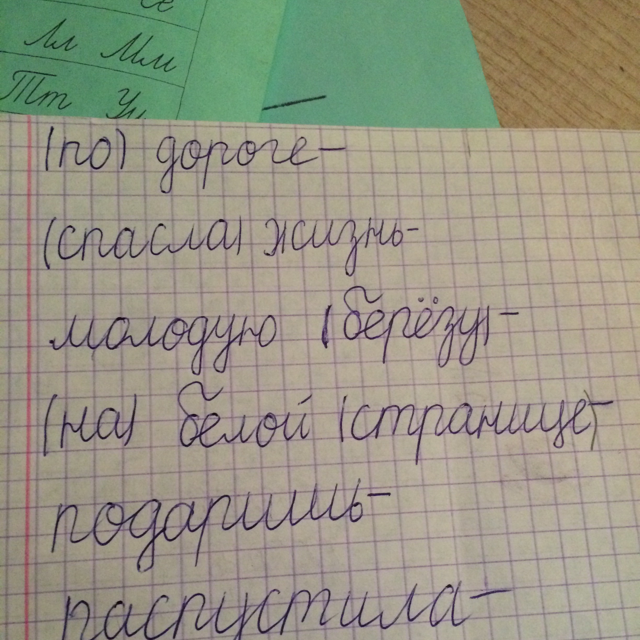 е
Лл Мм
Тт Уу
(по) дороге-
(спасла) жизнь-
молодую (берёзу)-
(на) белой (странице)-
подаришь-
распустила-